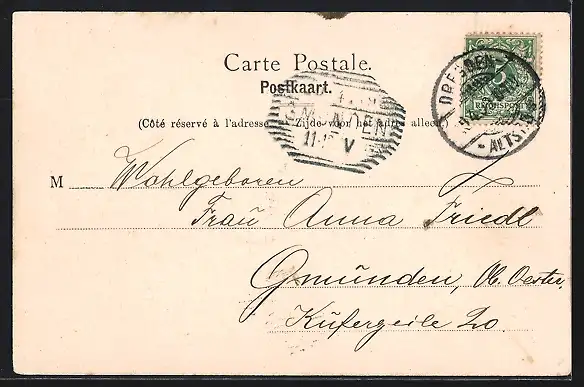 Carte Postale.
Postkaart.
(Côté réservé à l'adresse. — Zijde voor het adres alleen.)
DRESDEN
ALTST.
5
REICHSPOST
GMUNDEN
11
V
M Wohlgeboren
Frau Anna Friedl
Gmünden, Ob. Oester.
Kufergeile 20